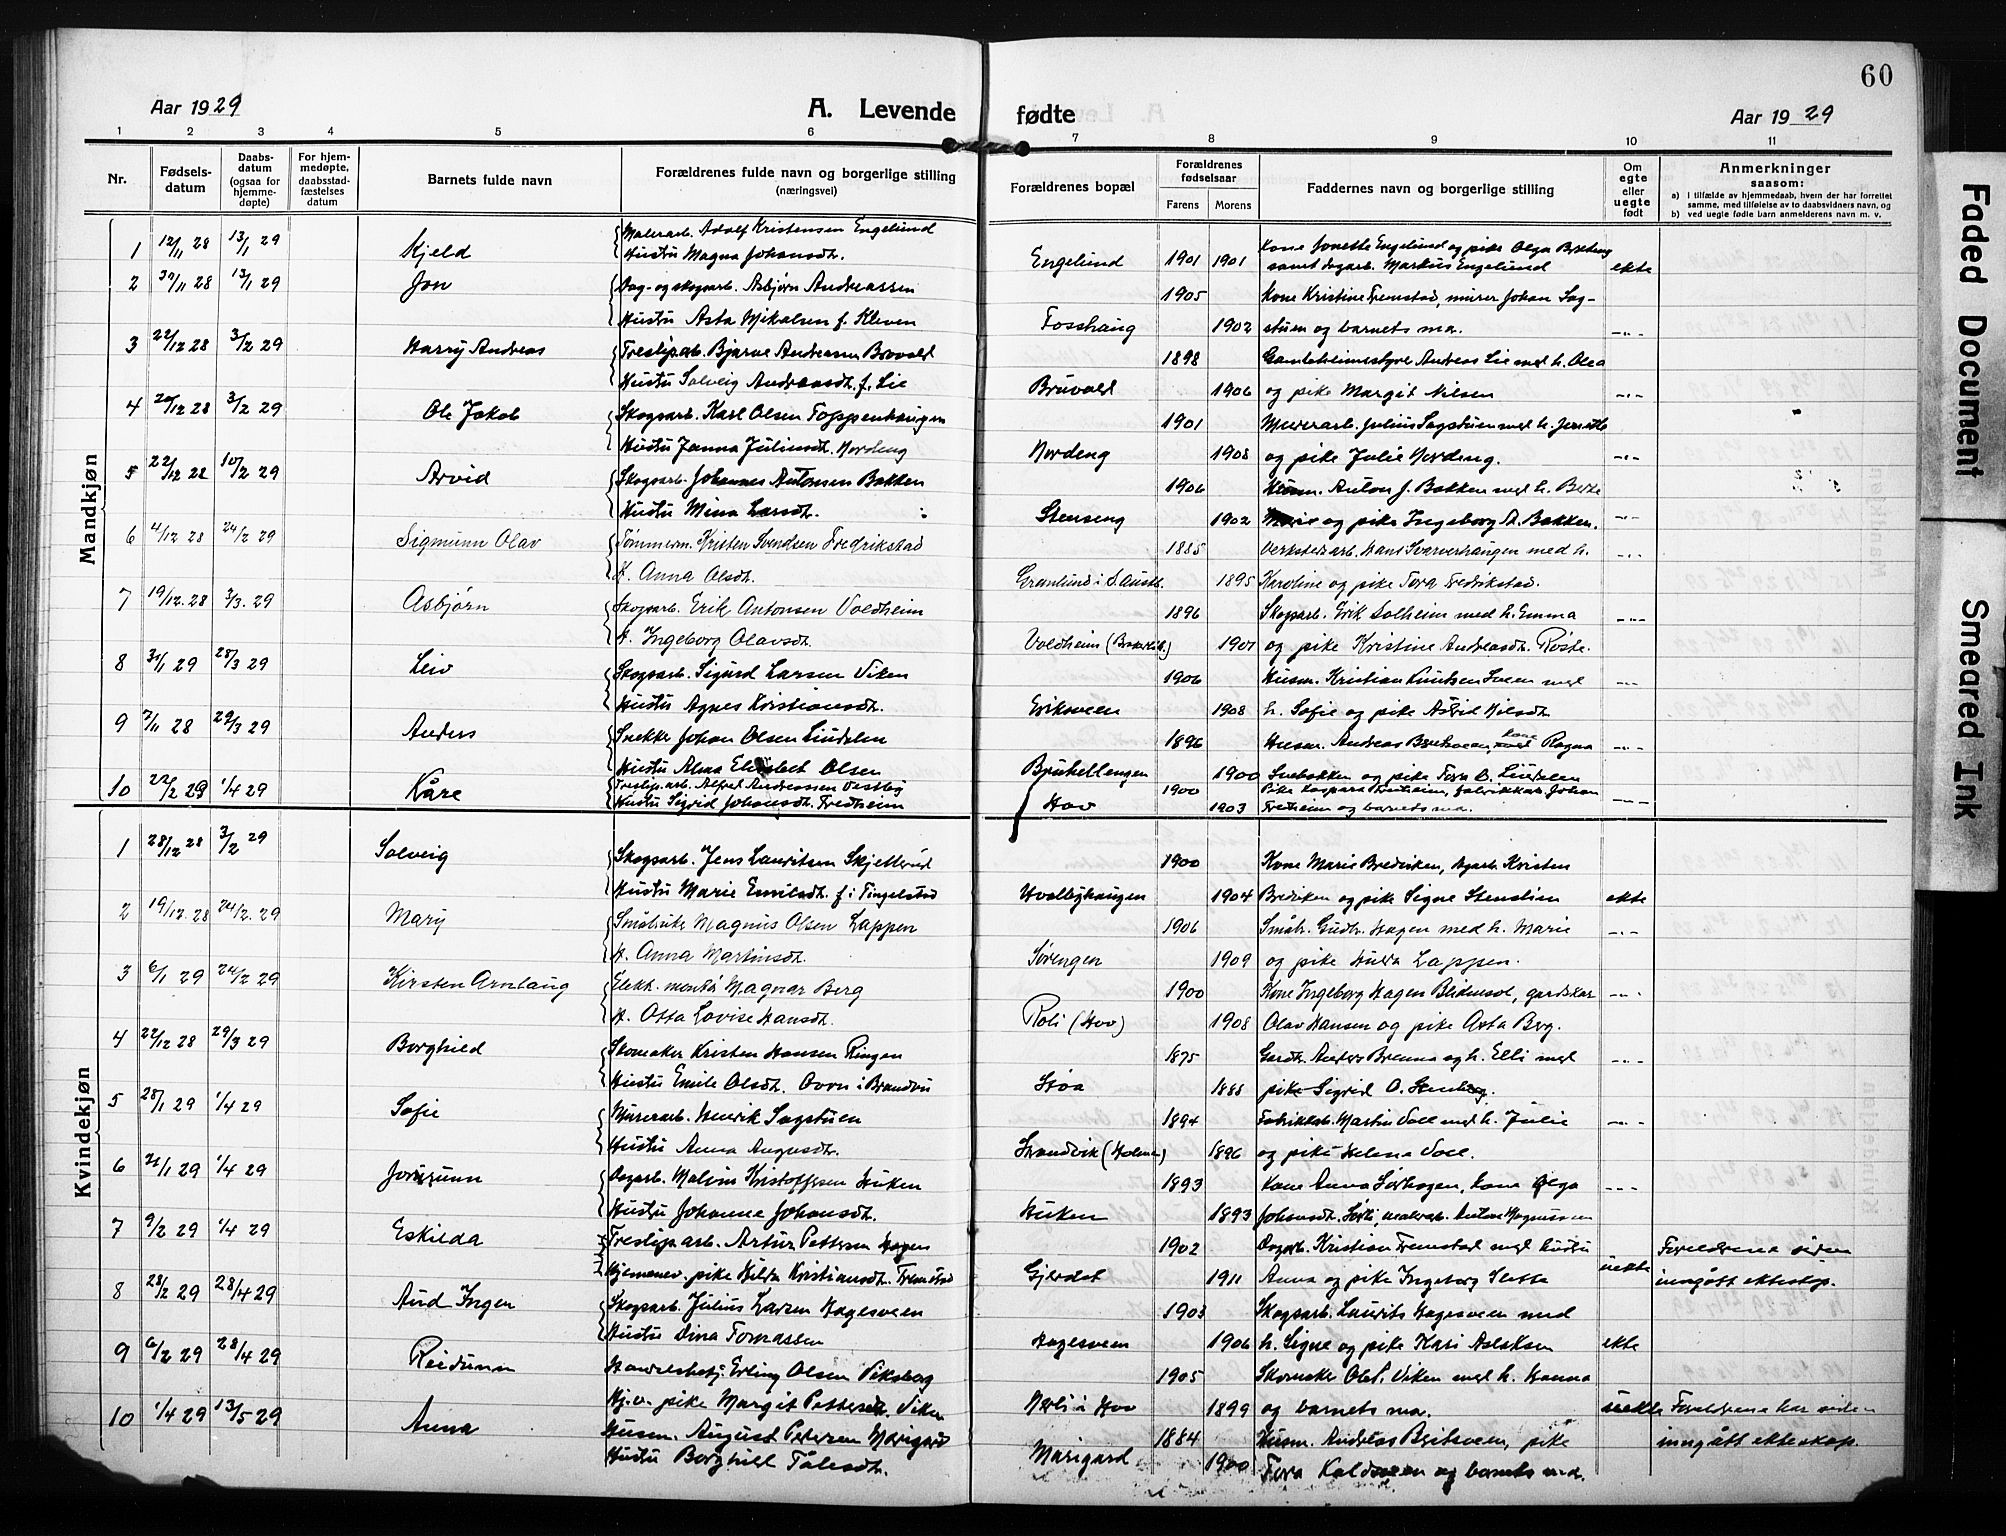 60
Aar 1929
A. Levende
fødte
Aar 1929
1 2 3 4 5 6 7 8 9 10 11
Nr.
Fødsels-
datum
Daabs-
datum
(ogsaa for
hjemme-
døpte)
For hjem-
medøpte,
daabsstad-
fæstelses
datum
Barnets fulde navn
Forældrenes fulde navn og borgerlige stilling
(næringsvei)
Forældrenes bopæl
Forældrenes
fødselsaar
Farens
Morens
Faddernes navn og borgerlige stilling
Om
egte
eller
uegte
født
Anmerkninger
saasom:
a) i tilfælde av hjemmedaab, hvem der har forrettet
samme, med tilføielse av to daabsvidners navn, og
b) ved uegte fødte barn anmelderens navn m. v.
Mandkjøn
1 12/11 28 13/1 29 Kjeld Malerarb. Adolf Kristensen Engelund
Hustru Magna Johansdt. Engelund 1901 1901 Kone Jonette Engelund og pike Olga
samt dagarb. Markus Engelund ekte
2 30/11 28 13/1 29 Jon Dag- og skogsarb. Asbjørn Andreassen 1905 Kone Kristine Fremstad, murer Johan Sag-
Hustru Asta Mikalsen f. Kleven Fosshaug 1902 stuen og barnets mor. -"-
3 22/12 28 3/2 29 Harry Andreas Treslip.arb. Bjarne Andreassen Bruvold 1898 Gamleheimsstyrer Andreas Lie med h. Olea
Hustru Solveig Andreasdt. f. Lie Bruvold 1906 og pike Margit Nilsen -"-
4 20/12 28 3/2 29 Ole Jakob Skogsarb. Karl Olsen Toppenhaugen 1901 Murerarb. Julius Sagstuen med h. Jenette
Hustru Janna Juliusdt. Nordeng Nordeng 1908 og pike Julie Nordeng. -"-
5 22/12 28 10/2 29 Arvid Skogsarb. Johannes Antonsen Bakken 1906 Husm. Anton J. Bakken med h. Berte
Hustru Mina Larsdt. Stenseng 1902 og pike Ingeborg A. Bakken. -"-
6 4/12 28 24/2 29 Sigmunn Olav Tømmerm. Kristen Svendsen Fredrikstad 1885 Verkstedarb. Hans Svarverhaugen med h. -"-
H. Anna Olsdt. Granlund i S. 1895 Karoline og pike Tora Fredrikstad.
7 19/12. 28 3/3. 29 Asbjørn Skogsarb. Erik Antonsen Voldheim 1896 Skogsarb. Erik Solheim med h. Emma -"-
H. Ingeborg Olavsdt. Voldheim 1901 og pike Kristine Andreasdt. Røste.
8 31/1 29 28/3 29 Leiv Skogsarb. Sigurd Larsen Viken 1906 Husm. Kristian Knutsen Sveen med -"-
Hustru Agnes Kristiansdt. Eriksveen 1908 h. Sofie og pike Astrid Nilsdt.
9 7/11 28 29/3 29 Anders Snekker Johan Olsen Lindelen 1896 Husm. Andreas Breiveen, kone Ragna -"-
Hustru Alma Elisabet Olsen 1900 Snebakken og pike Tora O. Lindelen
10 22/2 29 1/4 29 Kåre Treslip.arb. Alfred Andreassen Vestby 1900 Pike Kaspara Fredheim, fabrikkarb. Johan
Hustru Sigrid Johansdt. Fredheim Hov 1903 Fredheim og barnets mor. -"-
Kvindekjøn
1 28/12 28 3/2 29 Solveig Skogsarb. Jens Lauritsen Skjellerud 1900 Kone Marie Bredviken, dagarb. Kristen
Hustru Marie Emilsdt. f. i Tingelstad Hvalbyhaugen 1904 Bredviken og pike Signe Stenslien ekte
2 19/12. 28 24/2. 29 Mary Småbruker Magnus Olsen Lappen 1906 Småbr. Gudbr. Hagen med h. Marie -"-
H. Anna Martinsdt. Sørengen 1909 og pike Hulda Lappen.
3 6/1 29 24/2 29 Kirsten Arnlaug Elekt. montør Magnar Berg 1900 Kone Ingeborg Hagen Blidensol, gardskar -"-
H. Otta Lovise Hansdt. Roli (Hov) 1908 Olav Hansen og pike Asta Berg.
4 22/12 28 29/3 29 Borghild Skomaker Kristen Hansen Ringen 1875 Gardbr. Anders Brenna og h. Elli med -"-
Hustru Emile Olsdt. Ovrn i Brandbu Hoa 1888 pike Sigrid O. Stenberg.
5 28/1 29 1/4 29 Sofie Murerarb. Henrik Sagstuen 1894 Fabrikkarb. Martin Voll med h. Julie -"-
Hustru Anna Augusdt. Strandvik (Holmen) 1896 og pike Helena Voll.
6 21/1 29 1/4 29 Jorunn Dagarb. Malvin Kristoffersen Huken 1893 Kone Anna Sørhagen, kone Olga -"-
Hustru Johanne Johansdt. Huken 1893 Johansdt. Sørli, malerarb. Anton Magnussen
7 9/2 29 1/4 29 Eskilda Treslip.arb. Artur Pettersen Hagen 1902 Dagarb. Kristian Fremstad med hustru
Hjemmev. pike Hilda Kristiansdt. Fremstad Gjerdet 1911 Anna og pike Ingeborg Slette uekte Foreldrene siden
inngått ekteskap.
8 28/2 29 28/4 29 Aud Inger Skogsarb. Julius Larsen Hagesveen 1903 Skogsarb. Laurits Hagesveen med
Hustru Dina Tomassen Hagesveen 1906 h. Signe og pike Kari Aslaksen ekte
9 6/2 29 28/4 29 Reidunn Handelsbetj. Erling Olsen Viksberg 1905 Skomaker Ole S. Viken med h. Hanna
Hj.v. pike Margit Pettersen Viken Nerli i Hov 1899 og barnets mor. uekte Foreldrene har siden
inngått ekteskap.
10 1/4 29 13/5 29 Anna Husm. August Petersen Marigard 1884 Husm. Andreas Breitsveen, pike
Hustru Borghild Tålesdt. Marigard 1900 Tora Kaldsveen og barnets mor.
Faded Document
Smeared Ink